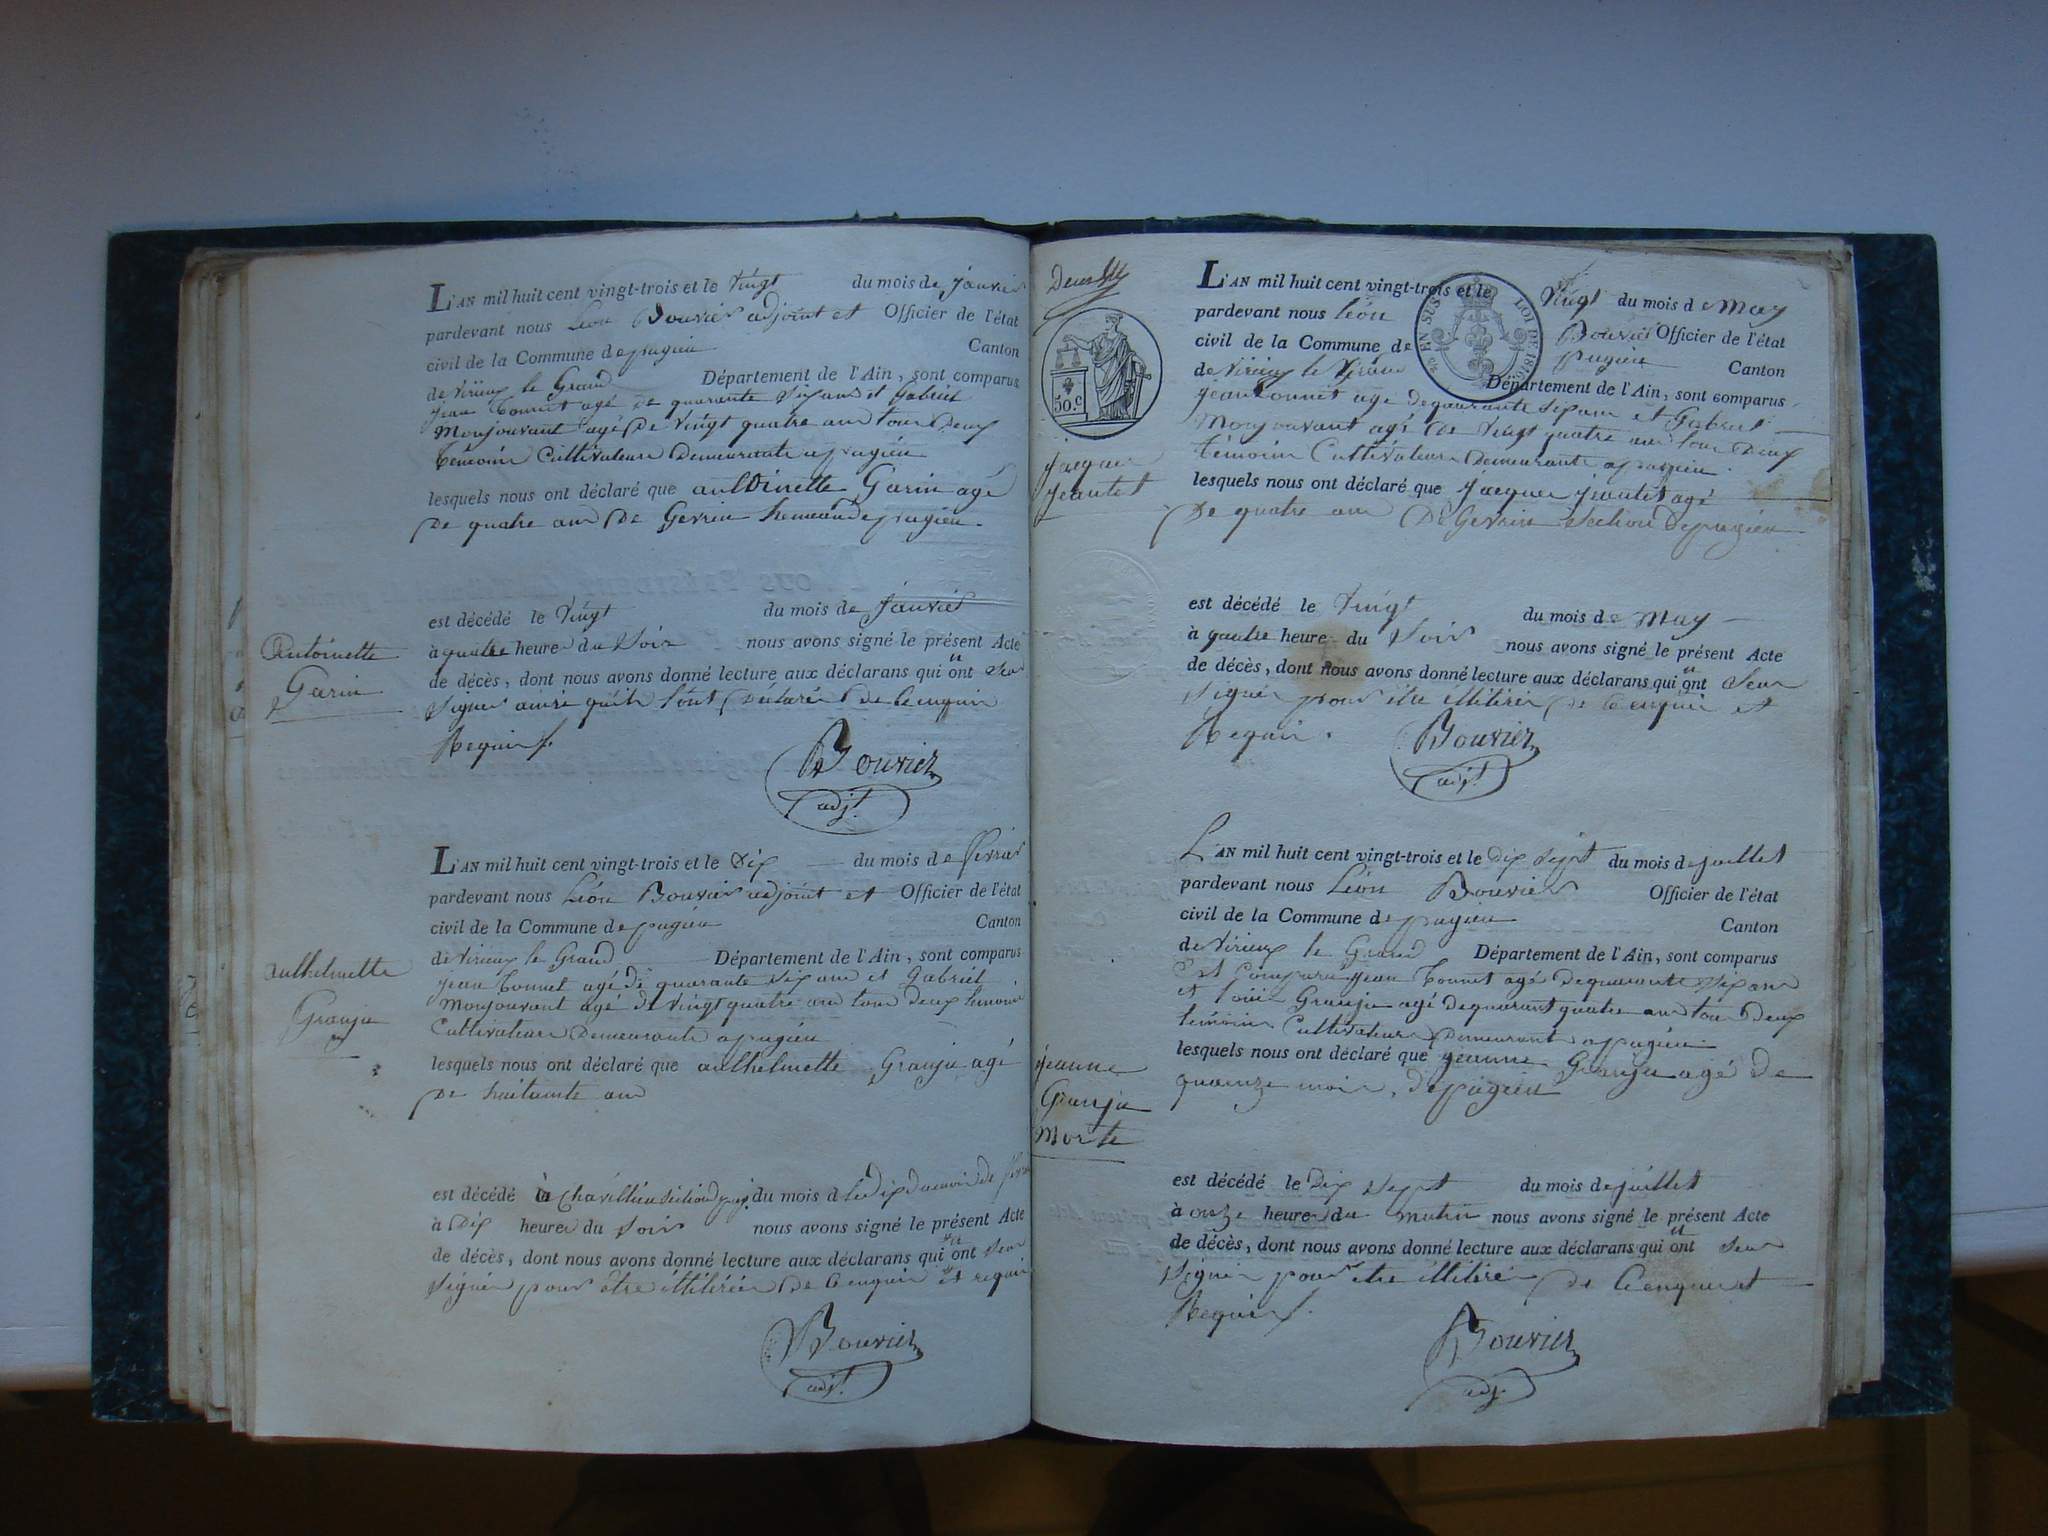 L'AN mil huit cent vingt-trois et le Vingt du mois de janvier
pardevant nous Léon Bouvier adjoint et Officier de l'état
civil de la Commune de pugieu Canton
de Virieux le Grand Département de l'Ain, sont comparus
jean Tonnet agé de quarante six ans et Gabriel
Monjouvant agé De Vingt quatre ans tous Deux
témoins Cultivateurs Demeurants a pugieu
lesquels nous ont déclaré que anthoinette Garin agé
De quatre ans De Gevrin hameau De pugieu.
est décédé le Vingt du mois de janvier
à quatre heures du Soir nous avons signé le présent Acte
Antoinette
Garin
de décès, dont nous avons donné lecture aux déclarans qui n'ont Seu
Signer ainsi qu'ils l'ont Déclarés de Ce enquis
Requis
Bouvier
adjt.
L'AN mil huit cent vingt-trois et le Dix du mois de fevrier
pardevant nous Léon Bouvier adjoint et Officier de l'état
civil de la Commune de pugieu Canton
de Virieux le Grand Département de l'Ain, sont comparus
anthelmette
Granju
jean Tonnet agé de quarante six ans et Gabriel
Monjouvant agé de Vingt quatre ans tous deux témoins
Cultivateurs Demeurants a pugieu
lesquels nous ont déclaré que anthelmette Granju agé
De huitante ans
est décédé à Chavillieu section pug. du mois d le Dix du mois de fevrier
à Dix heures du Soir nous avons signé le présent Acte
de décès, dont nous avons donné lecture aux déclarans qui n'ont Seu
Signer pour être illitérés De Ce enquis et requis
Bouvier
adjt.
50.c
EN SUS LOI DE
L'AN mil huit cent vingt-trois et le Vingt du mois d e May
pardevant nous Léon Bouvier Officier de l'état
civil de la Commune de pugieu Canton
de Virieux le Grand Département de l'Ain, sont comparus
jean Tonnet agé de quarante six ans et Gabriel
Monjouvant agé De Vingt quatre ans tous Deux
témoins Cultivateurs Demeurants a pugieu.
jacques
jeantet
lesquels nous ont déclaré que jacques jeantet agé
De quatre ans De Gevrin Section De pugieu
est décédé le Vingt du mois de May
à quatre heure du Soir nous avons signé le présent Acte
de décès, dont nous avons donné lecture aux déclarans qui n'ont Seu
Signer pour être illitérés De Ce enquis et
Requis.
Bouvier
adjt.
L'AN mil huit cent vingt-trois et le Dix Sept du mois de juillet
pardevant nous Léon Bouvier Officier de l'état
civil de la Commune de pugieu Canton
de Virieux le Grand Département de l'Ain, sont comparus
Est Comparu jean Tonnet agé de quarante Six ans
et loüis Granju agé de quarant quatre ans tous Deux
témoins Cultivateurs Demeurant a pugieu
lesquels nous ont déclaré que jeanne Granju agé de
quainze mois, de pugieu
jeanne
Granju
Morte
est décédé le Dix Sept du mois de juillet
à onze heures du matin nous avons signé le présent Acte
de décès, dont nous avons donné lecture aux déclarans qui n'ont Seu
Signer pour etre illitiré De Ce enquis et
Requis
Bouvier
adj.